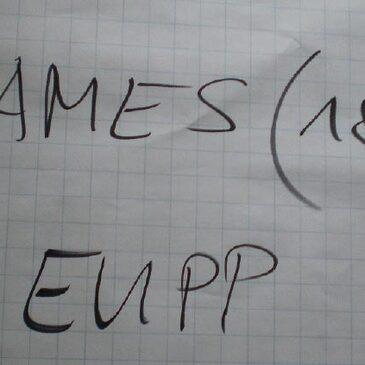 AMES (18
EUPP